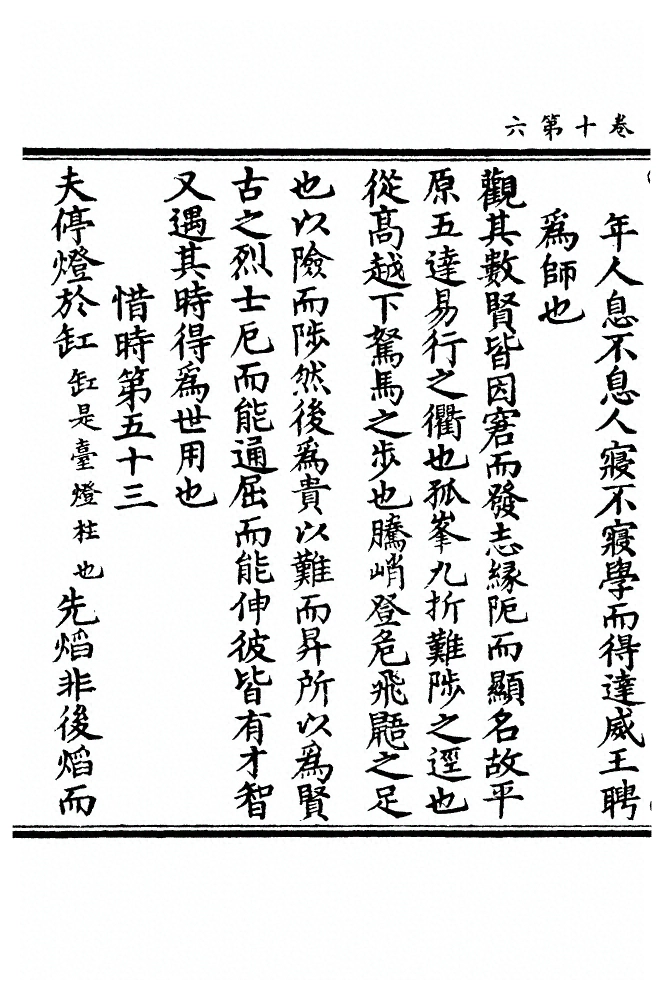 卷十第六
年人息不息人寢不寢學而得達威王聘
爲師也
觀其數賢皆因窘而發志緣阨而顯名故平
原五達易行之衢也孤峯九折難陟之逕也
從高越下駑馬之步也騰峭登危飛鼯之足
也以險而陟然後爲貴以難而昇所以爲賢
古之烈士厄而能通屈而能伸彼皆有才智
又遇其時得爲世用也
惜時第五十三
夫停燈於缸缸是臺燈柱也先焰非後焰而